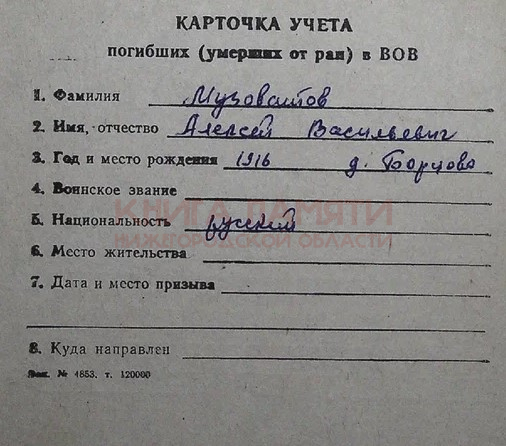 КАРТОЧКА УЧЕТА
погибших (умерших от ран) в ВОВ
1. Фамилия Музоватов
2. Имя, отчество Алексей Васильевич
3. Год и место рождения 1916 д. Борцово
4. Воинское звание
КНИГА ПАМЯТИ
5. Национальность русский
НИЖЕГОРОДСКОЙ ОБЛАСТИ
6. Место жительства
7. Дата и место призыва
8. Куда направлен
Зак. № 4853. т. 120000